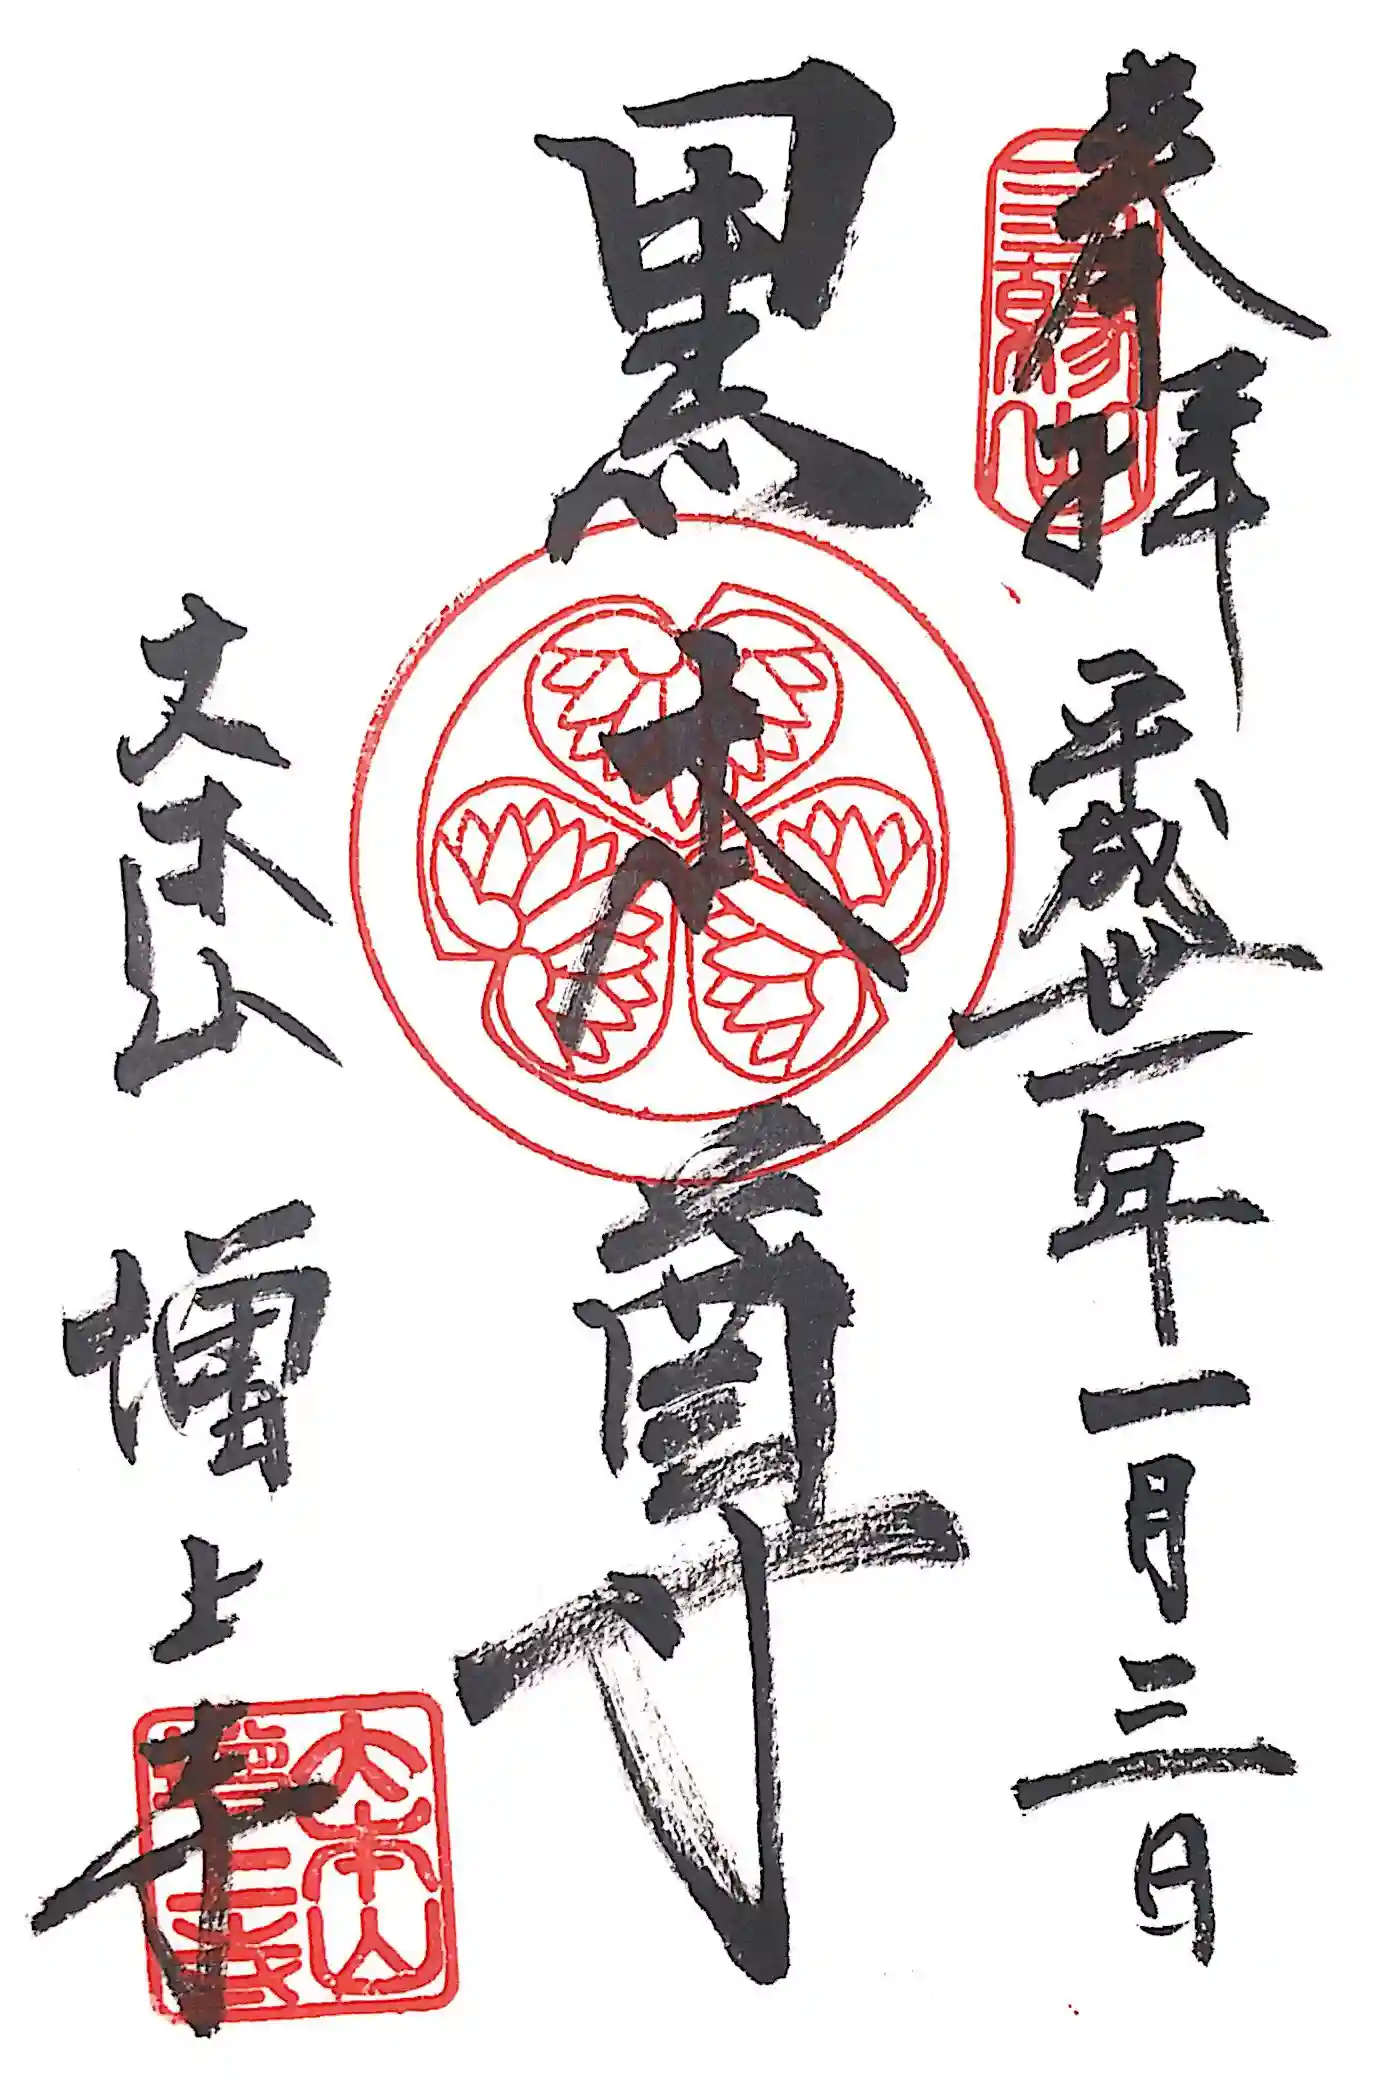 奉拝 平成卅一年一月三日
三縁山
黒本尊
大本山 増上寺
大本山
増上寺